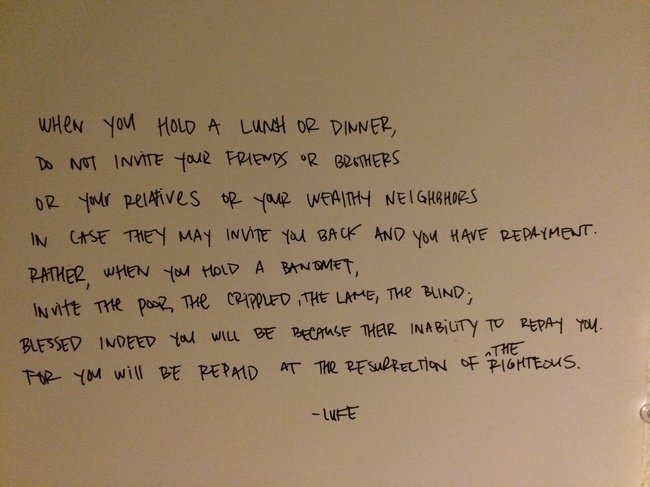 WHEN YOU HOLD A LUNCH OR DINNER,
DO NOT INVITE YOUR FRIENDS OR BROTHERS
OR YOUR RELATIVES OR YOUR WEALTHY NEIGHBHORS
IN CASE THEY MAY INVITE YOU BACK AND YOU HAVE REPAYMENT.
RATHER, WHEN YOU HOLD A BANQUET,
INVITE THE POOR, THE CRIPPLED, THE LAME, THE BLIND;
BLESSED INDEED YOU WILL BE BECAUSE THEIR INABILITY TO REPAY YOU.
FOR YOU WILL BE REPAID AT THE RESURRECTION OF ^THE RIGHTEOUS.
-LUKE